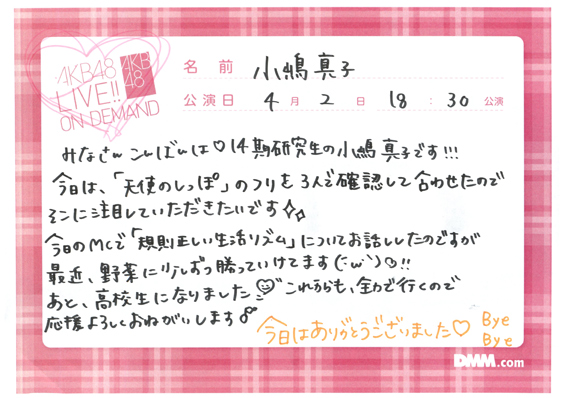 AKB48
LIVE!!
ON DEMAND
AKB
48
名前 小嶋真子
公演日 4月2日 18:30公演
みなさんこんばんは♡14期研究生の小嶋真子です!!!
今日は、「天使のしっぽ」のフリを3人で確認して合わせたので
そこに注目していただきたいです
今日のMCで「規則正しい生活リズム」についてお話ししたのですが
最近、野菜に少しずつ勝っていけてます(´・ω・`)!!
あと、高校生になりました これからも、全力で行くので
応援よろしくおねがいします
今日はありがとうございました♡ Bye
Bye
DMM.com